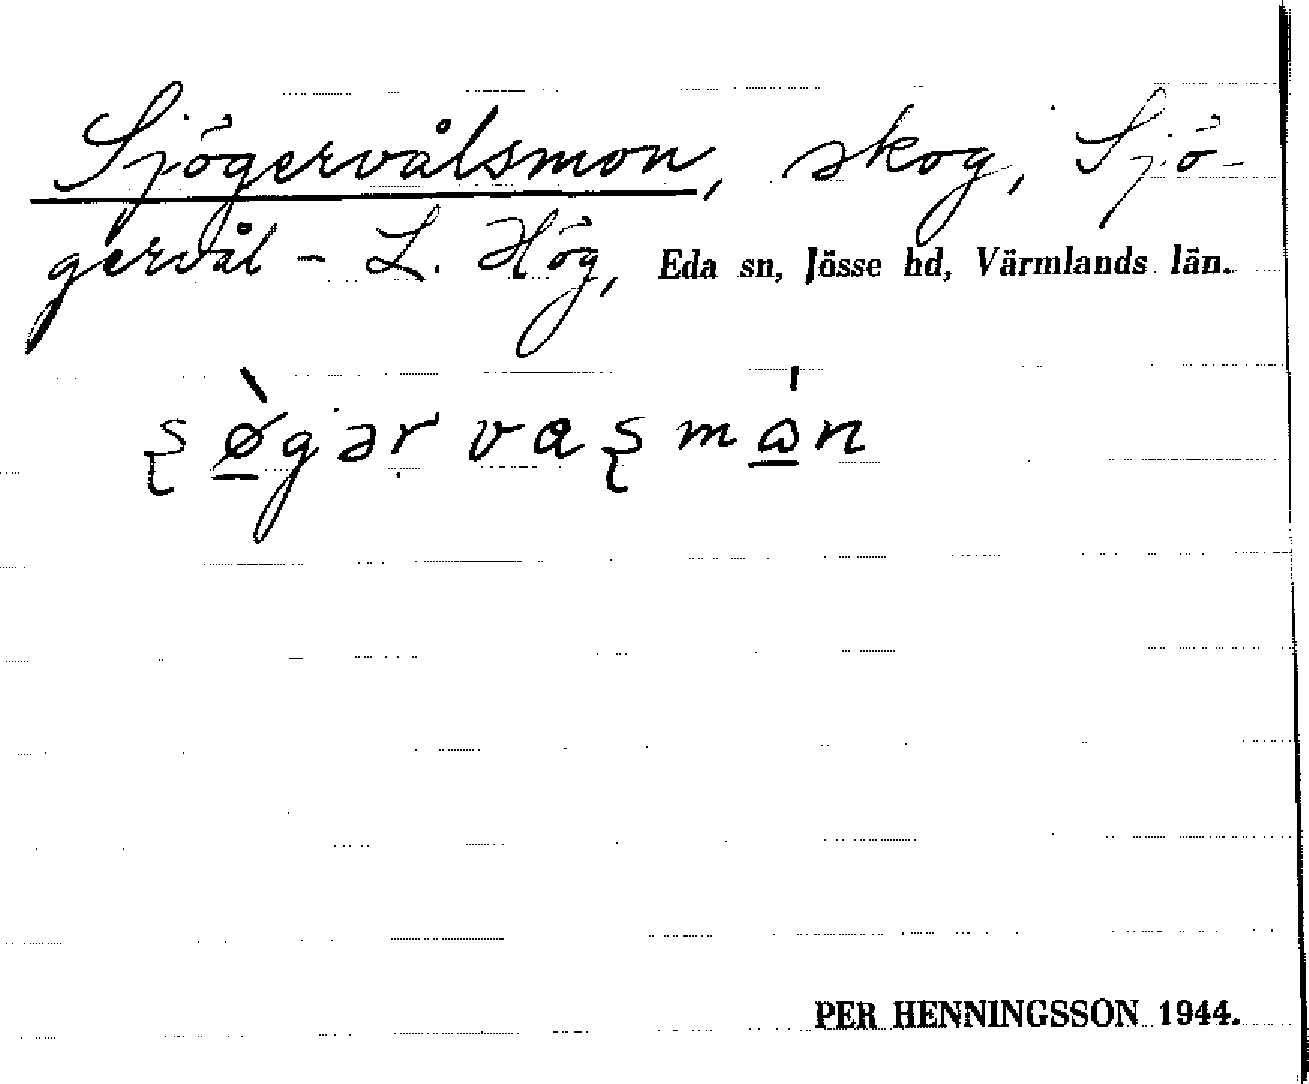 Sjögervålsmon, skog, Sjö-
gervål - L. Hög, Eda sn, Jösse hd, Värmlands län.
ʂø̲̀gər vaʂmɷ̲́n
PER HENNINGSSON 1944.